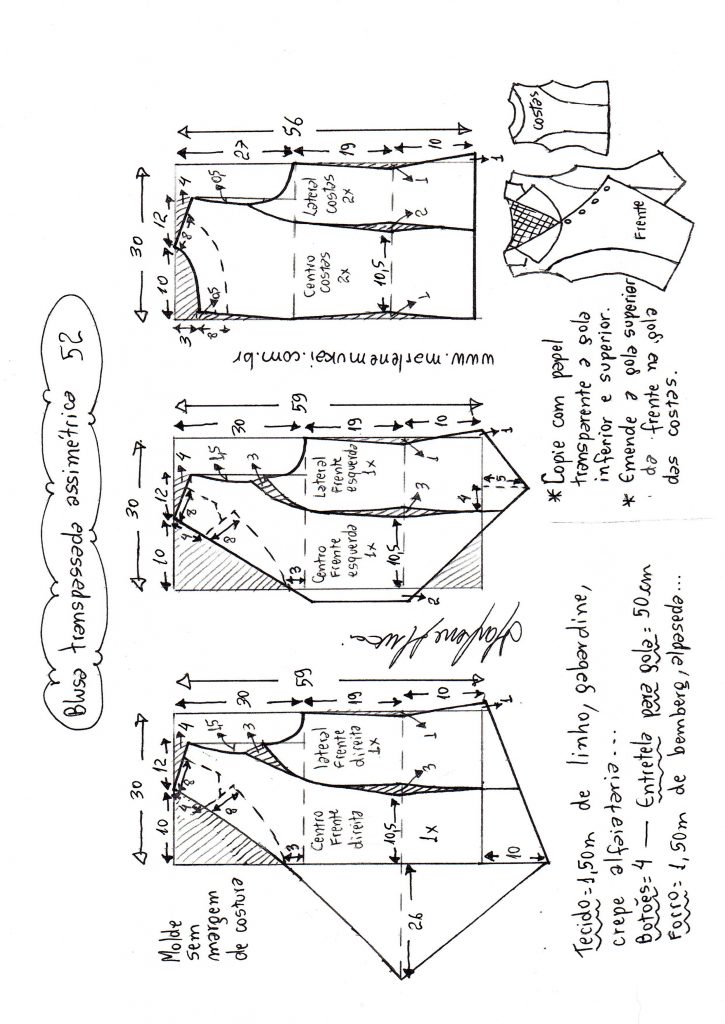 Blusa transpassada assimétrica 52
Molde
sem
margem
de costura
30
10
12
4
4
8
8
1,5
3
3
30
19
10
59
Centro
Frente
direita
1x
lateral
Frente
direita
1x
10,5
3
1
1
26
10
30
10
12
4
4
8
8
1,5
3
3
30
19
10
59
Centro
Frente
esquerda
1x
Lateral
Frente
esquerda
1x
10,5
3
1
1
2
4
15
30
10
12
4
8
3
8
0,5
0,5
27
19
10
56
Centro
costas
2x
Lateral
costas
2x
10,5
1
2
1
1
www.marlenemukai.com.br
Tecido=1,50m de linho, gabardine,
crepe alfaiataria...
Botões=4 — Entretela para gola=50cm
Forro=1,50m de bemberg, alpaseda...
* Copie com papel
transparente a gola
inferior e superior.
* Emende a gola superior
da frente na gola
das costas.
Frente
costas